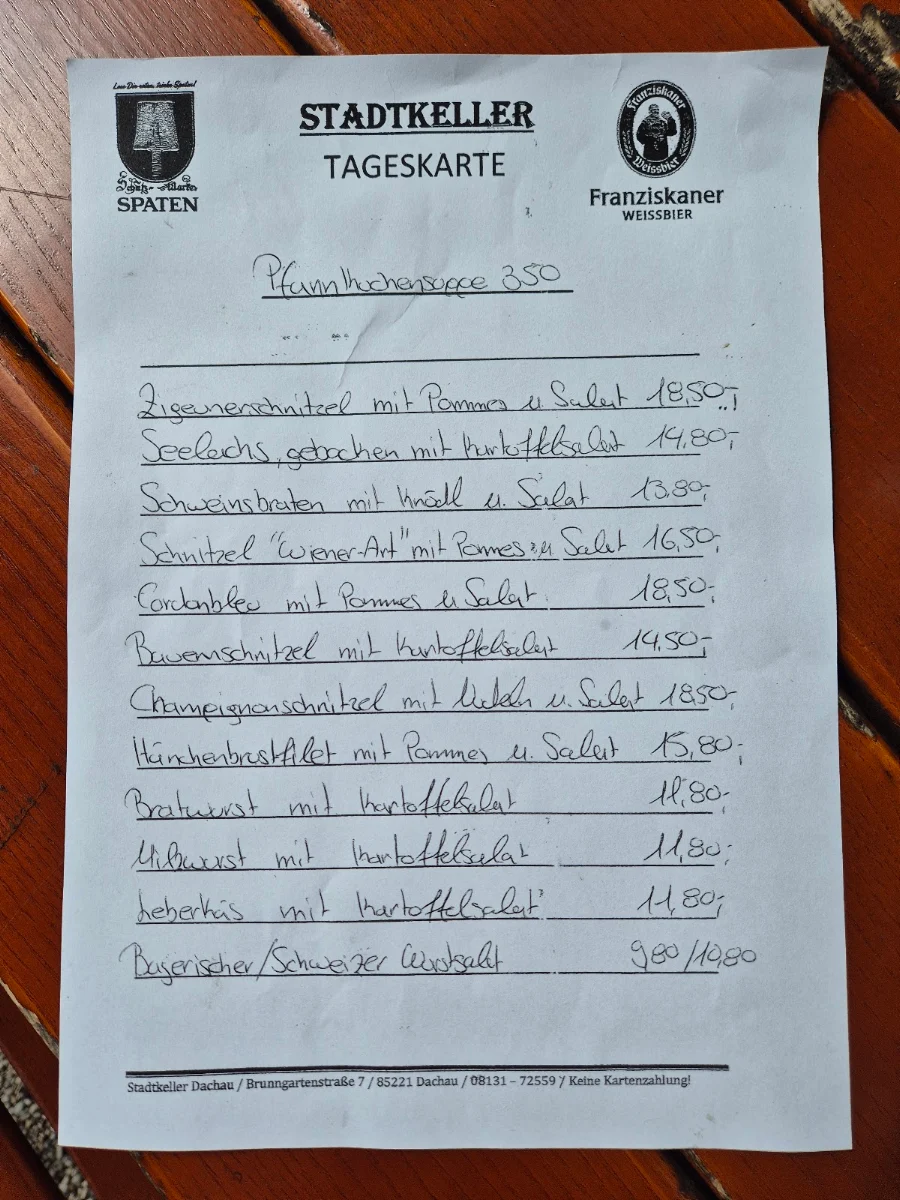 Lass Dir raten, trinke Spaten!
SPATEN
STADTKELLER
TAGESKARTE
Franziskaner
Weissbier
Franziskaner
WEISSBIER
Pfannkuchensuppe 350
Zigeunerschnitzel mit Pommes u. Salat 18,50,-
Seelachs, gebacken mit Kartoffelsalat 14,80,-
Schweinsbraten mit Knödl u. Salat 13,80,-
Schnitzel "Wiener-Art" mit Pommes u Salat 16,50,-
Cordonbleu mit Pommes u Salat 18,50,-
Bauernschnitzel mit Kartoffelsalat 14,50,-
Champignonschnitzel mit Nudeln u. Salat 18,50,-
Hänchenbrustfilet mit Pommes u. Salat 15,80,-
Bratwurst mit Kartoffelsalat 11,80,-
Milzwurst mit Kartoffelsalat 11,80,-
Leberkäs mit Kartoffelsalat 11,80,-
Bayerischer/Schweizer Wurstsalat 9,80/10,80
Stadtkeller Dachau / Brunngartenstraße 7 / 85221 Dachau / 08131 – 72559 / Keine Kartenzahlung!